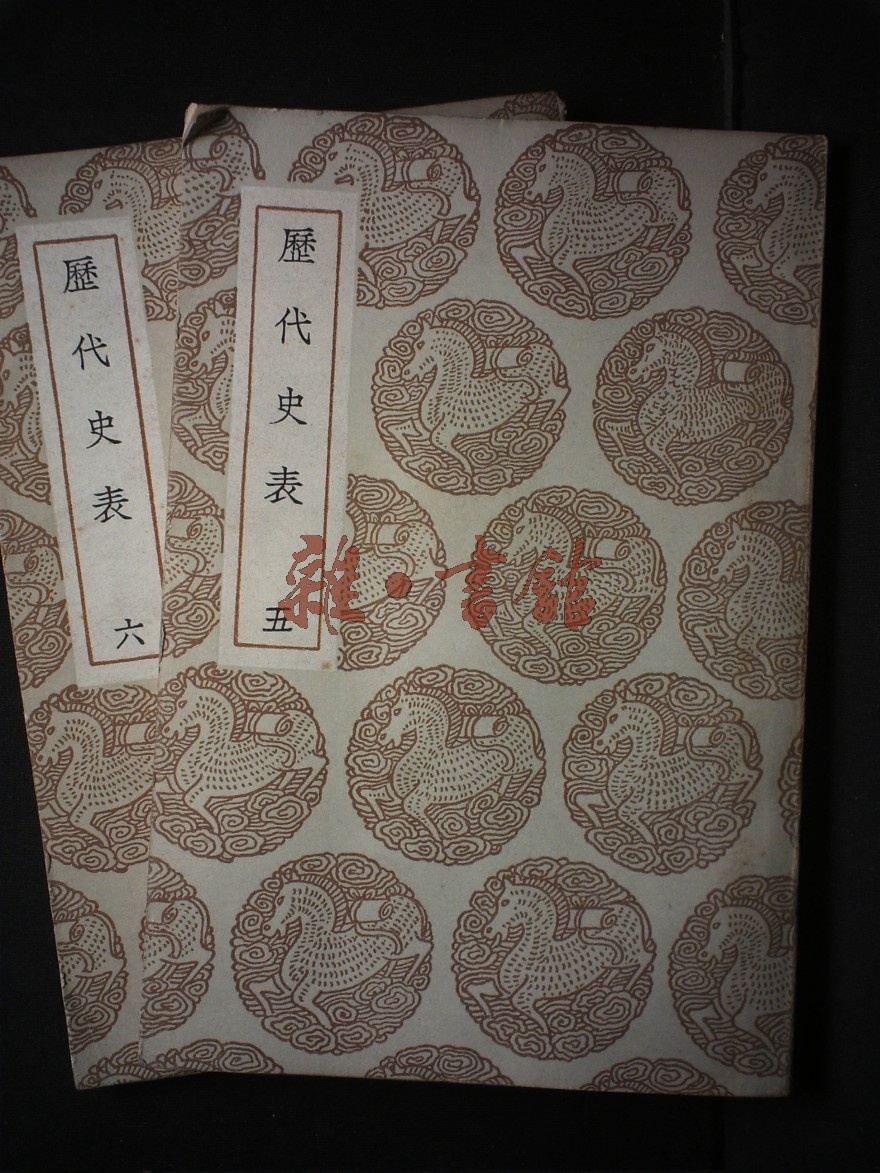 歷代史表 五
歷代史表 六
雜·書館